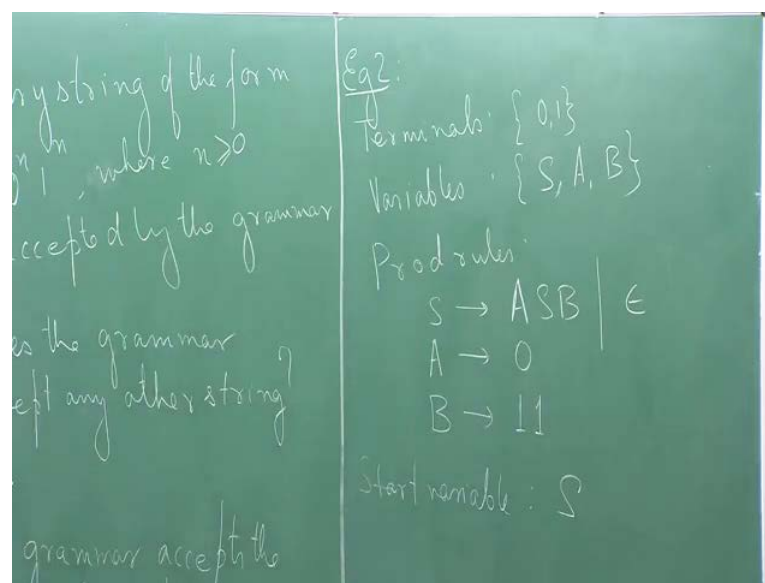 ny string of the form
0ⁿ1ⁿ, where n≥0
ccepted by the grammar
es the grammar
ept any other string?
grammar accepts the
Eg2:
Terminals: {0,1}
Variables: {S, A, B}
Prod rules:
S → ASB | ϵ
A → 0
B → 11
Start variable: S